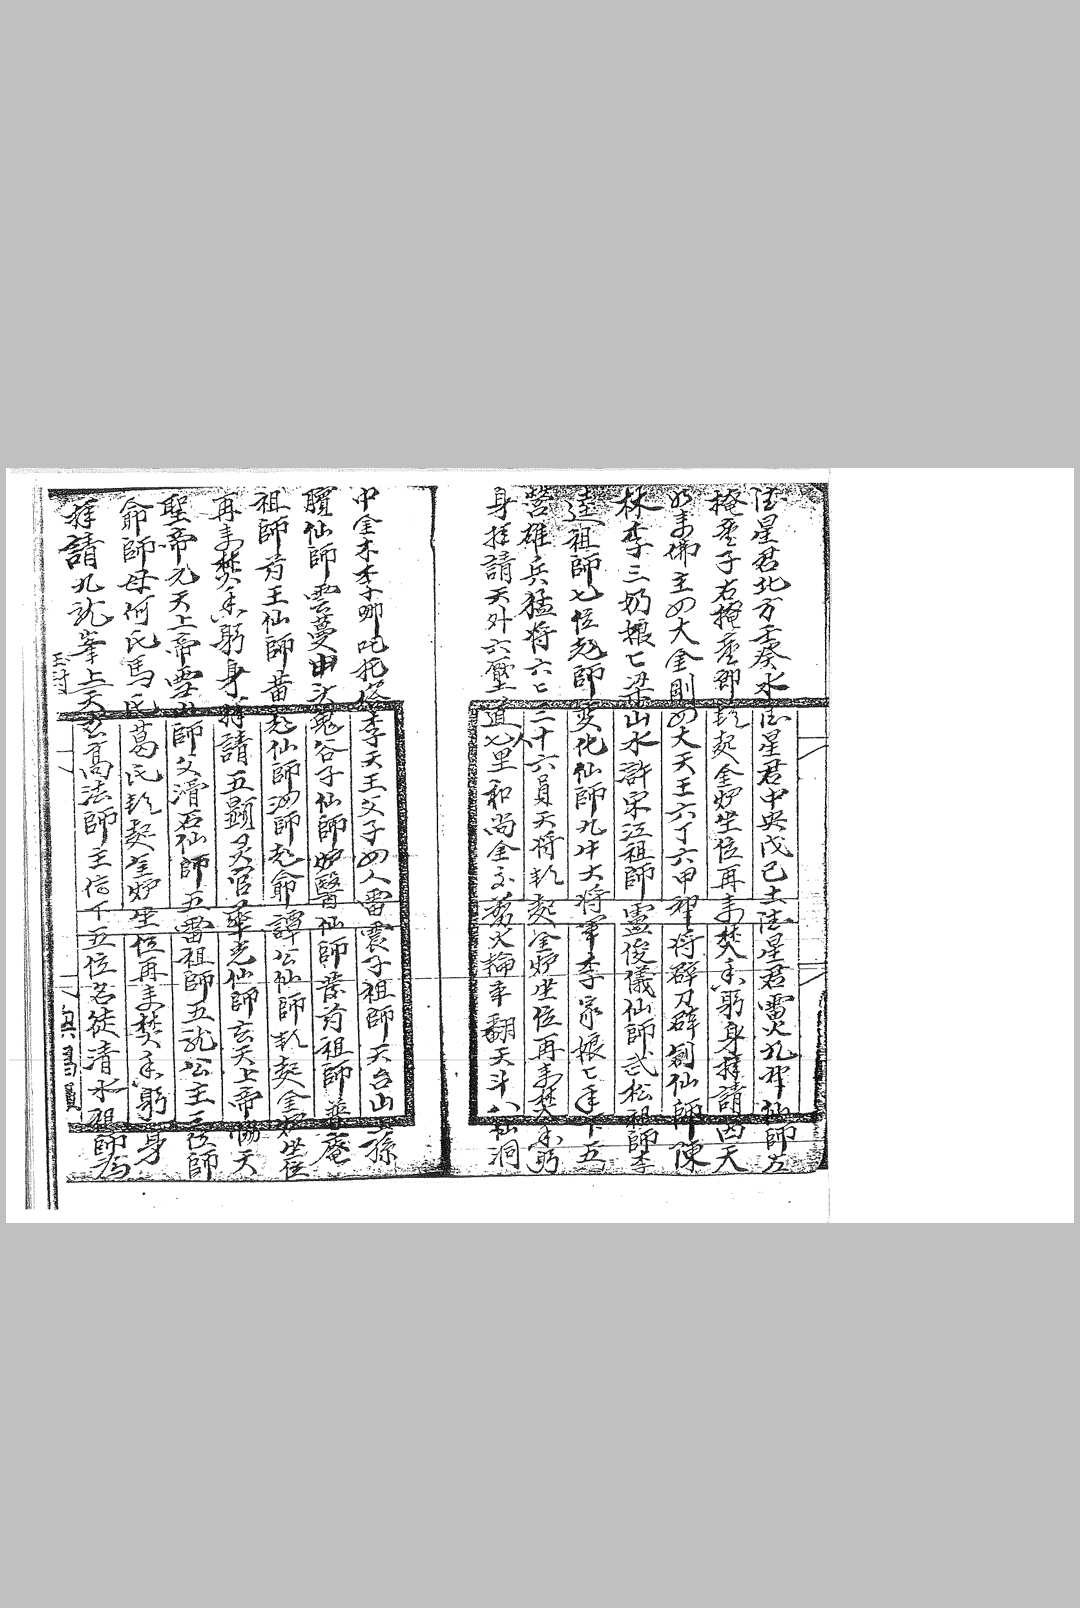 德星君北方壬癸水德星君中央戊己土德星君雷火九牛仙師左
掩童子右掩童郎執起金炉坐位再来焚香躬身拜請四天
如来佛主四大金剛四大天王六丁六甲神将辟刀辟劍仙師陳
林李三奶娘七梁山水滸宋江祖師靈俊儀仙師武松祖師李
逵祖師七位尨師变化仙師九牛大将軍李家娘七手下五
營雄兵猛将六七三十六員天将執起金炉坐位再来焚香躬
身拜請天外六壓道人七里和尚金交剪火輪車翻天斗八仙洞
中金木李哪吒托塔李天王父子四人雷震子祖師天台山孫
臏仙師雲蔓由汝鬼谷子仙師炉醫仙師葉肖祖師普庵
祖師肖王仙師黄尨仙師四師尨爺譚公仙師執起金炉坐位
再来焚香躬身拜請五顯灵官華光仙師玄天上帝協天
聖帝九天上帝雪山師父滑石仙師五雷祖師五龙公主三位師
爺師母何氏馬氏葛氏執起金炉坐位再来焚香躬身
拜請九龙峯上天 高法師主 下五位名徒清水祖師為